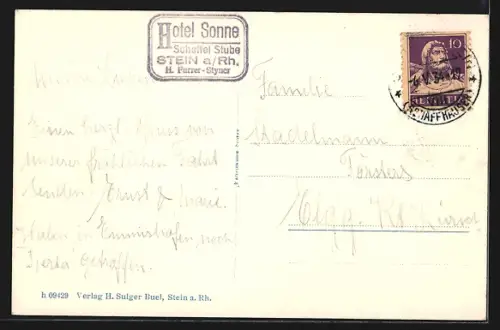 Hotel Sonne
Scheffel Stube
STEIN a/Rh.
H. Furrer-Styner
10
HELVETIA
(SCHAFFHAUSEN)
Familie
Stadelmann
Försters
Elgg. Kt. Zürich
Einen herzl. Gruss von
unserer fröhlichen Fahrt
senden Ernst & Marie.
Haben in Emmishofen, noch
h 09429 Verlag H. Sulger Buel, Stein a. Rh.